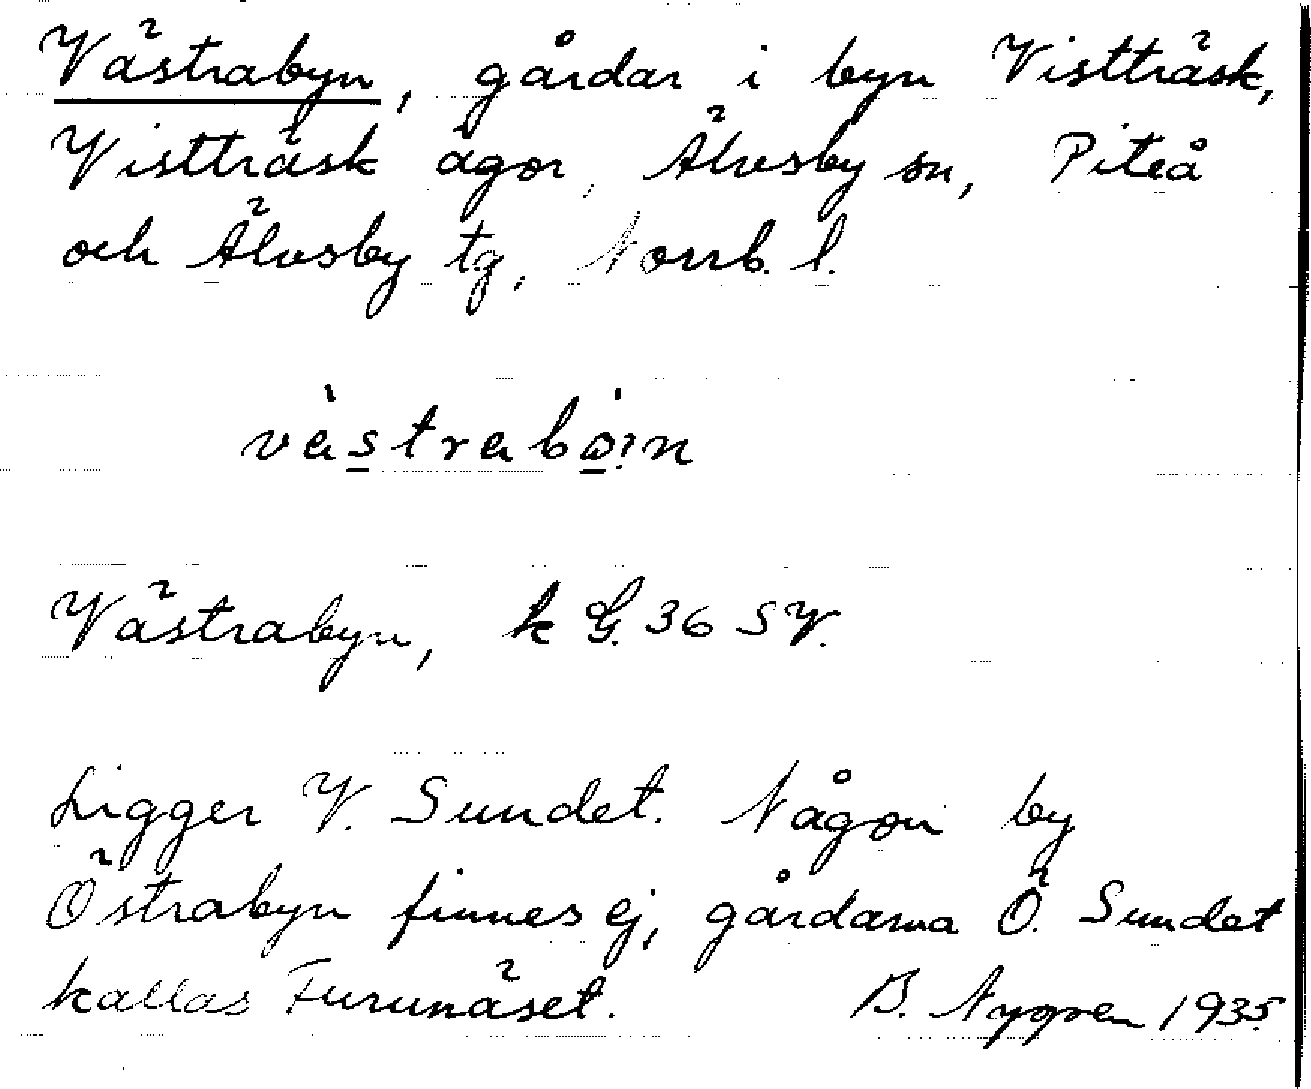 Västrabyn, gårdar i byn Vistträsk,
Vistträsk ägor, Älvsby sn, Piteå
och Älvsby tg, Norrb. l.
Västrabyn, k G. 36 SV.
Ligger V. Sundet. Någon by
Östrabyn finnes ej, gårdarna Ö. Sundet
kallas Furunäset. B. Nygren 1935